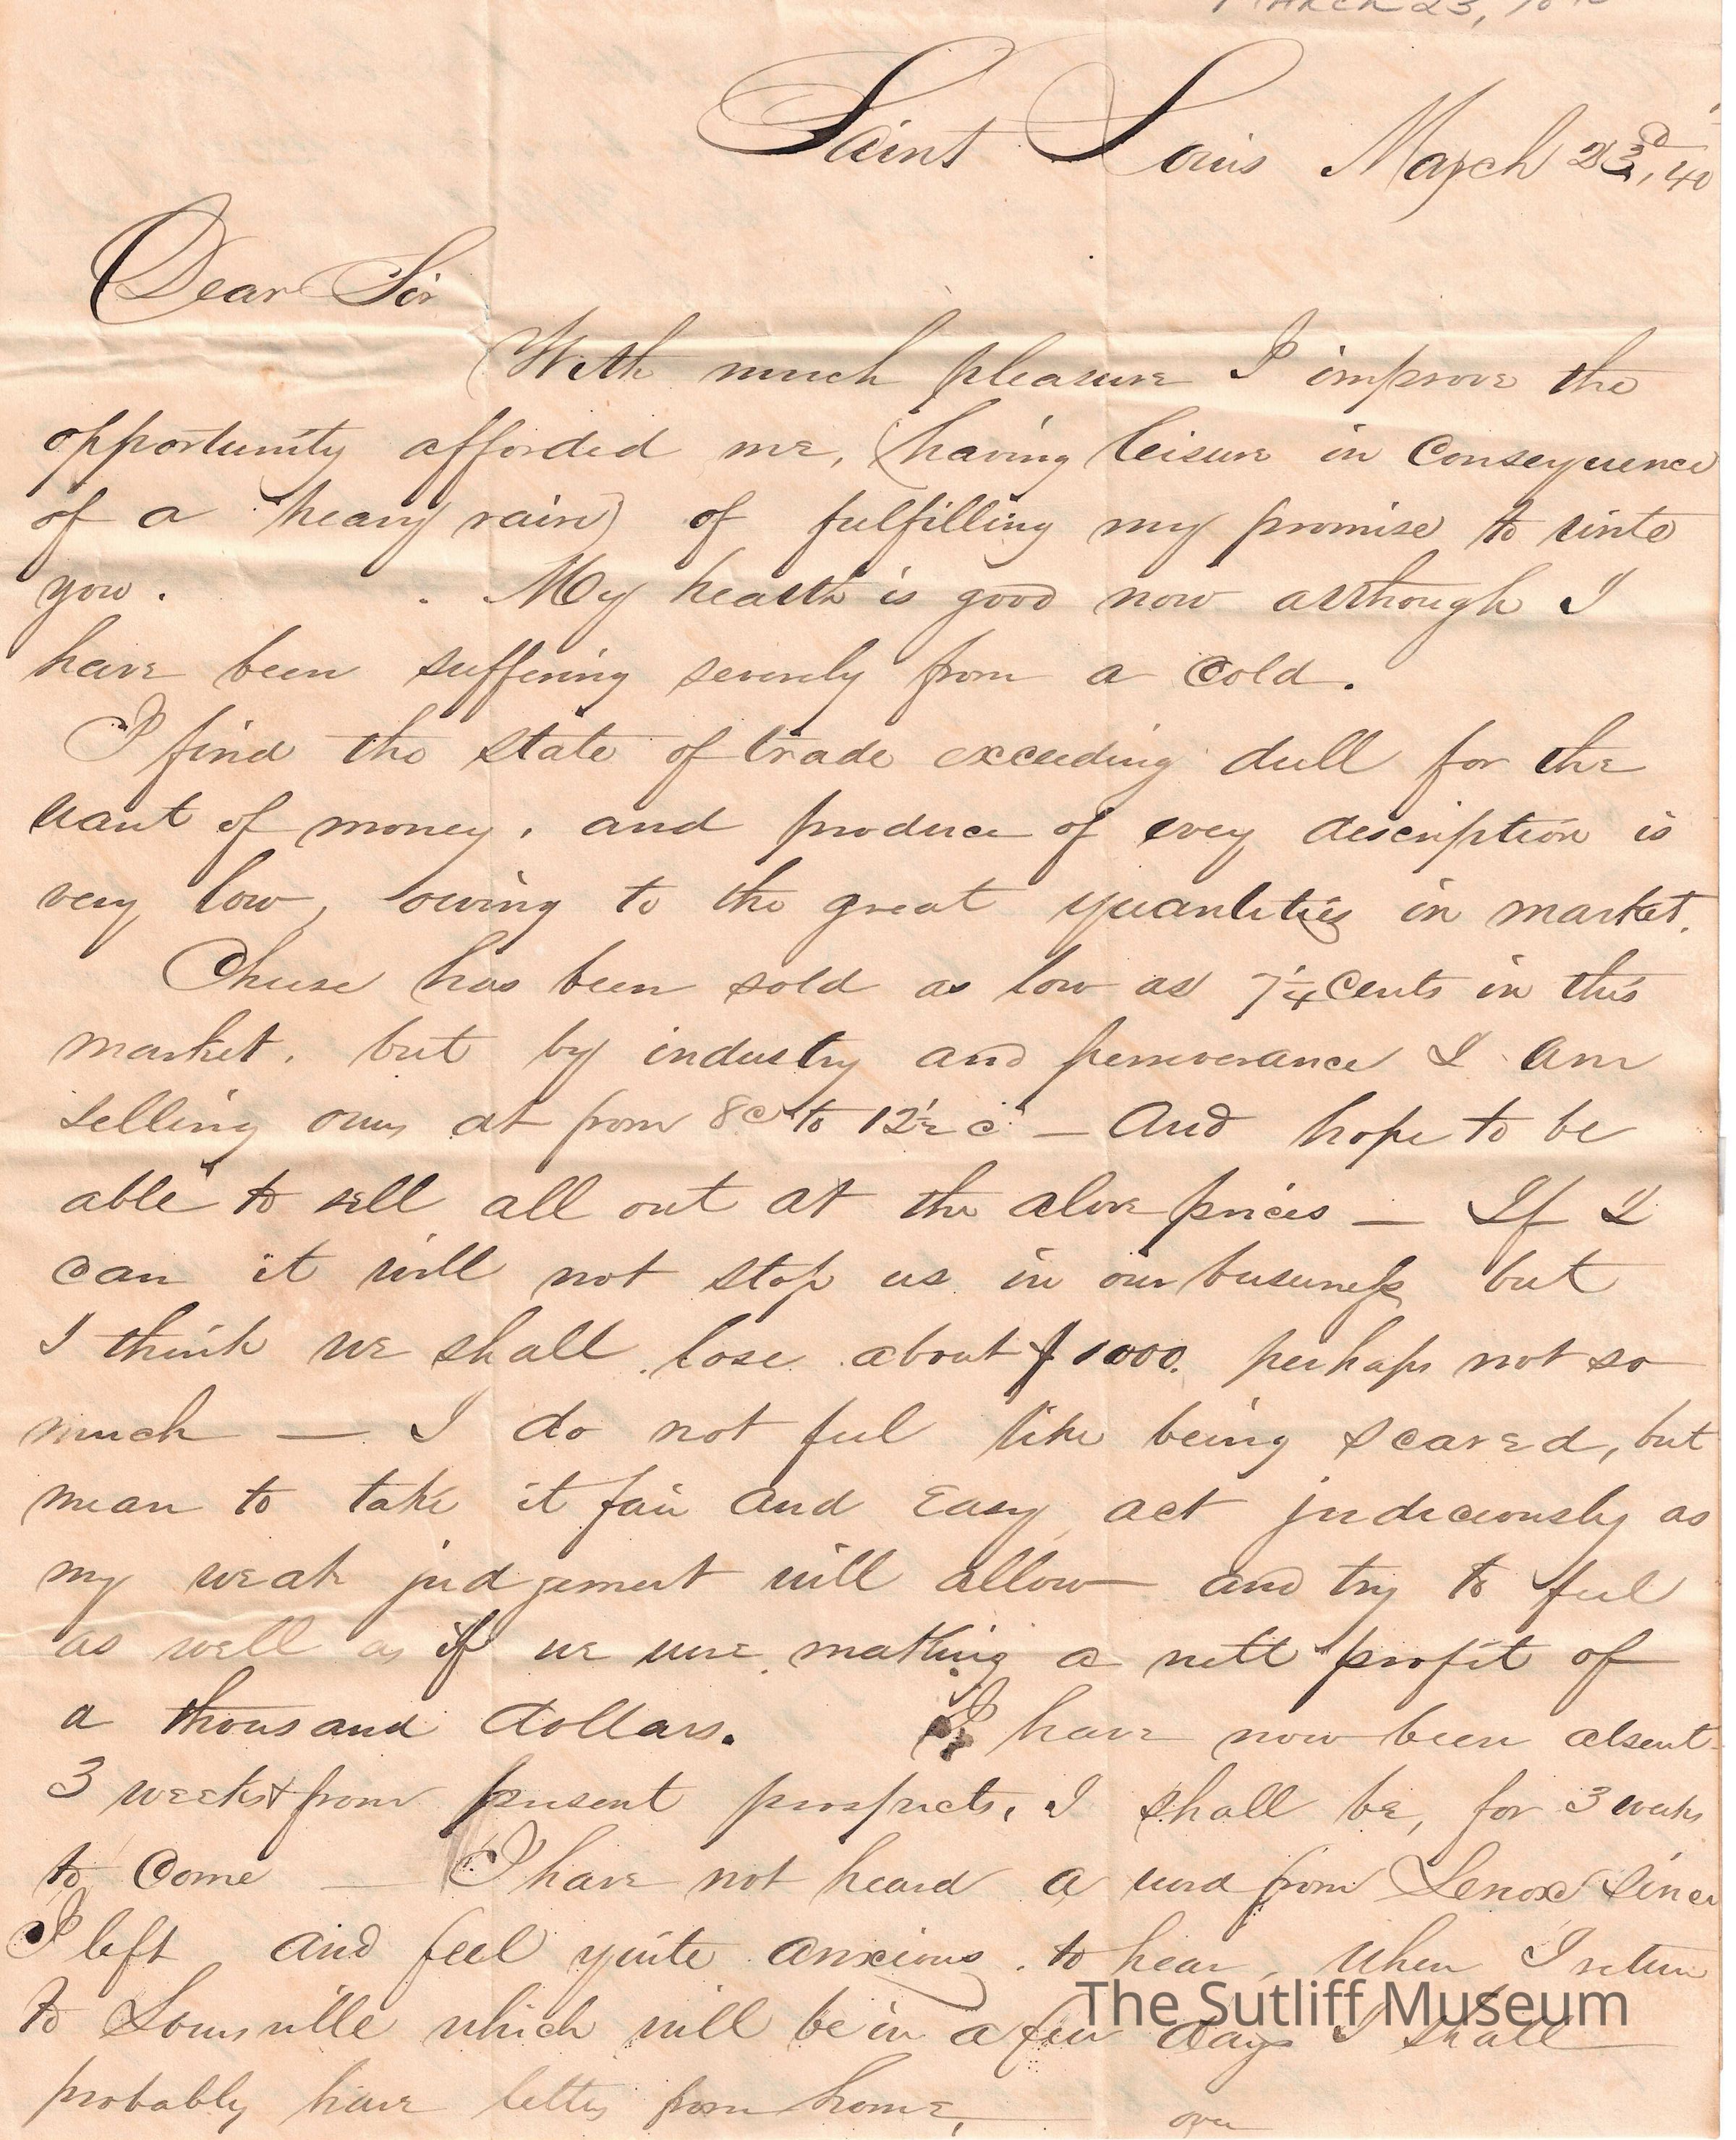 March 23, 
Saint Louis March 23d, 40
Dear Sir
With much pleasure I improve the
opportunity afforded me, (having leisure in Consequence
of a heavy rain) of fulfilling my promise to write
you. My health is good now although I
have been suffering severely from a cold.
I find the state of trade exceeding dull for the
want of money, and produce of evey description is
very low, owing to the great quantities in market.
Cheese has been sold as low as 7 1/4 Cents in this
market. but by industry and perseverance I am
selling ours at from 8c to 12 1/2 c — And hope to be
able to sell all out at the above prices — If I
can it will not stop us in our business but
I think we shall lose about $1000. perhaps not so
much — I do not feel like being scared, but
mean to take it fair and Easy act judiciously as
my weak judgement will allow and try to feel
as well as if we were making a nett profit of
a thousand dollars. I have now been absent
3 weeks & from present prospects, I shall be, for 3 weeks
to Come — I have not heard a word from Lenox Since
I left and feel quite anxious to hear, When I return
to Louisville which will be in a few days I shall
The Sutliff Museum
probably have letters from home,
over